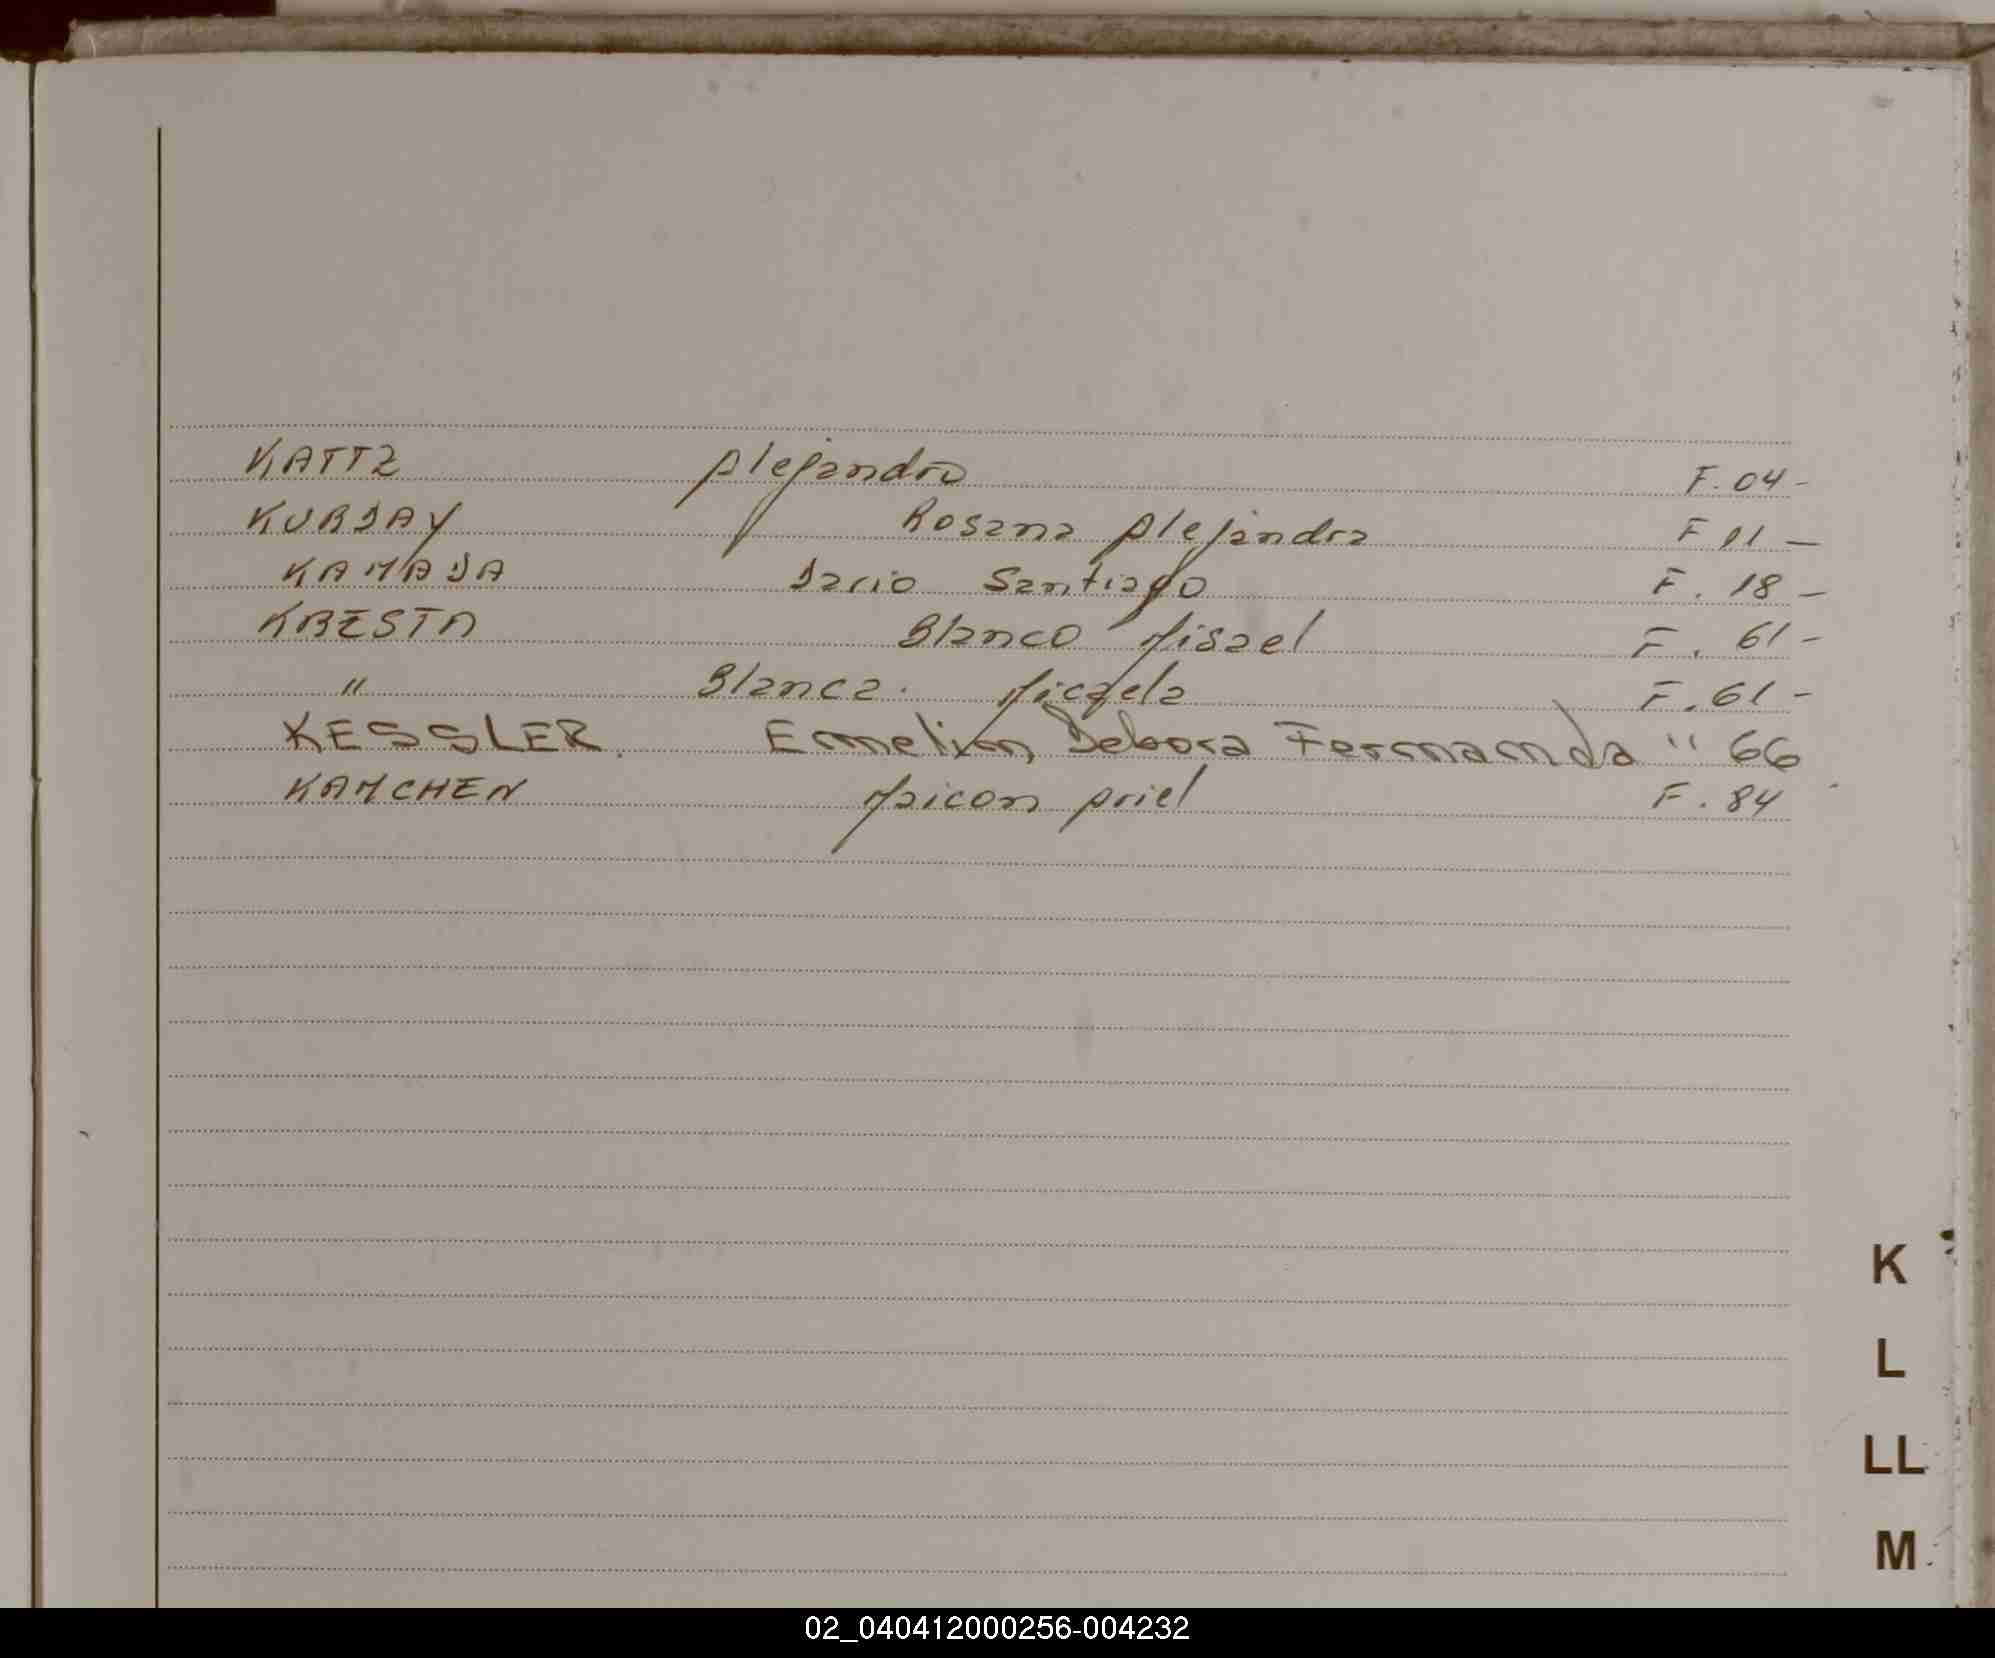 KATTZ Alejandro F. 04-
KURDAY Rosana Alejandra F 11 -
KAMADA Dario Santiago F. 18 -
KRESTA Blanco Misael F. 61-
" Blanca. Micaela F. 61 -
KESSLER. Emmelim Debora Fernanda " 66
KAMCHEN Maicon Ariel F. 84
K
L
LL
M
02_040412000256-004232